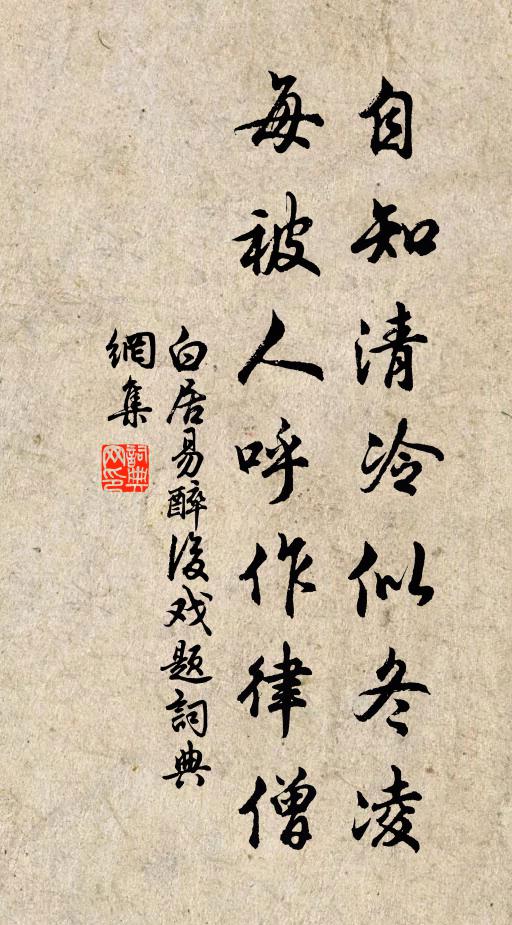 自知清冷似冬凌
每被人呼作律僧
白居易醉後戏题詞典
網集
詞典
网印